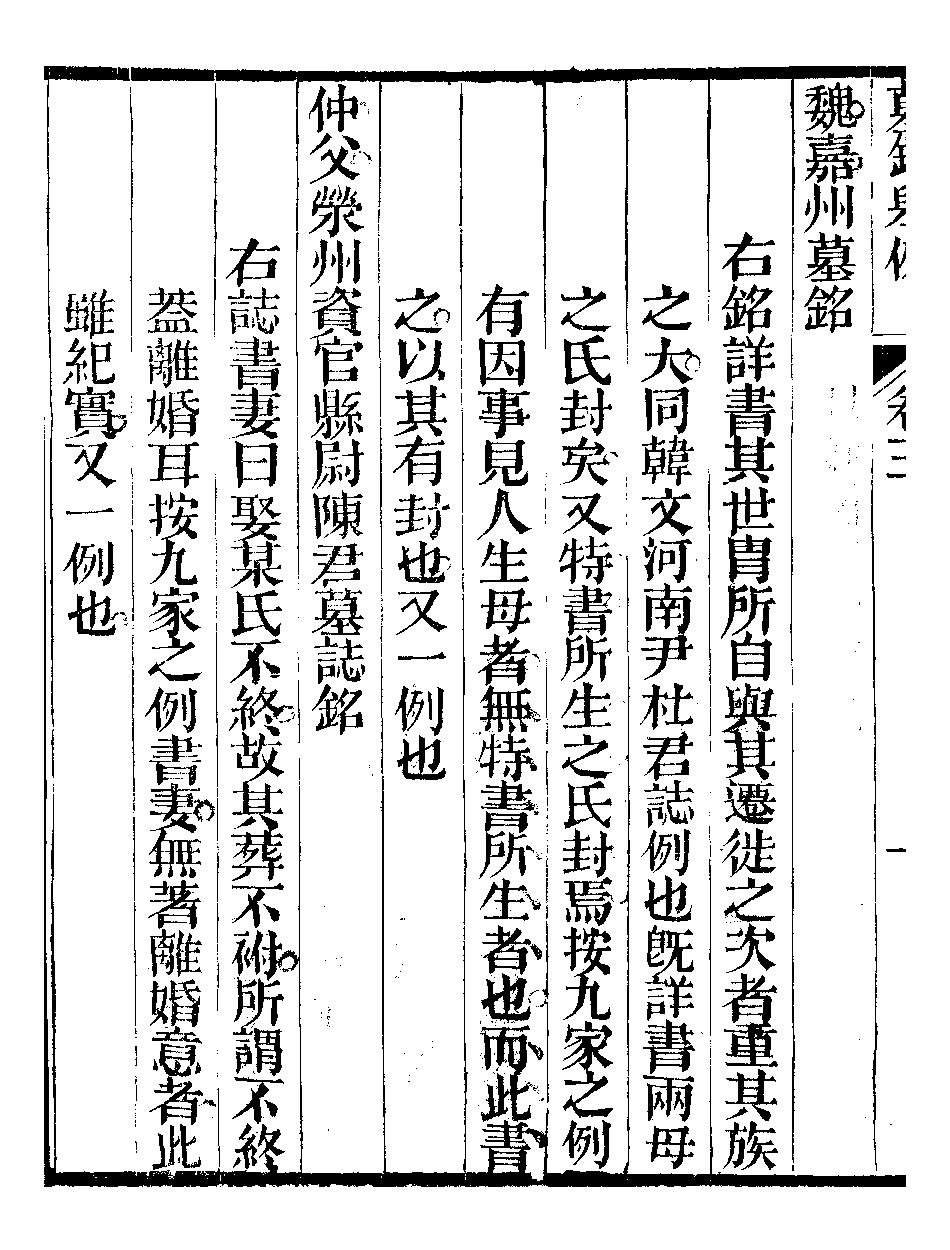 魏嘉州墓銘
右銘詳書其世胄所自與其遷徙之次者重其族
之大同韓文河南尹杜君誌例也旣詳書兩母
之氏封矣又特書所生之氏封焉按九家之例
有因事見人生母者無特書所生者也而此書
之以其有封也又一例也
仲父滎州資官縣尉陳君墓誌銘
右誌書妻曰娶某氏不終故其葬不祔所謂不終
葢離婚耳按九家之例書妻無著離婚意者此
雖紀實又一例也